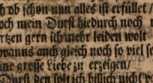 ob schon nun alles ist erfüllet/
och mein Durst hiedurch noch
rtzen gern ich mehr leiden wolt
wanns auch gleich noch so viel se
ine grosse Liebe zu erzeigen/
Durst den solt ich billich nicht